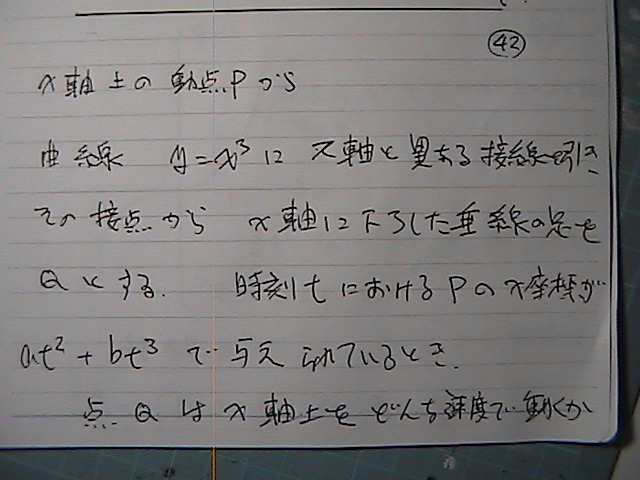 42
x軸上の動点Pから
曲線 y=x³に x軸と異なる接線を引き
その接点から x軸に下ろした垂線の足を
Qとする. 時刻tにおけるPのx座標が
at²+bt³で与えられているとき.
点Qはx軸上をどんな速度で動くか